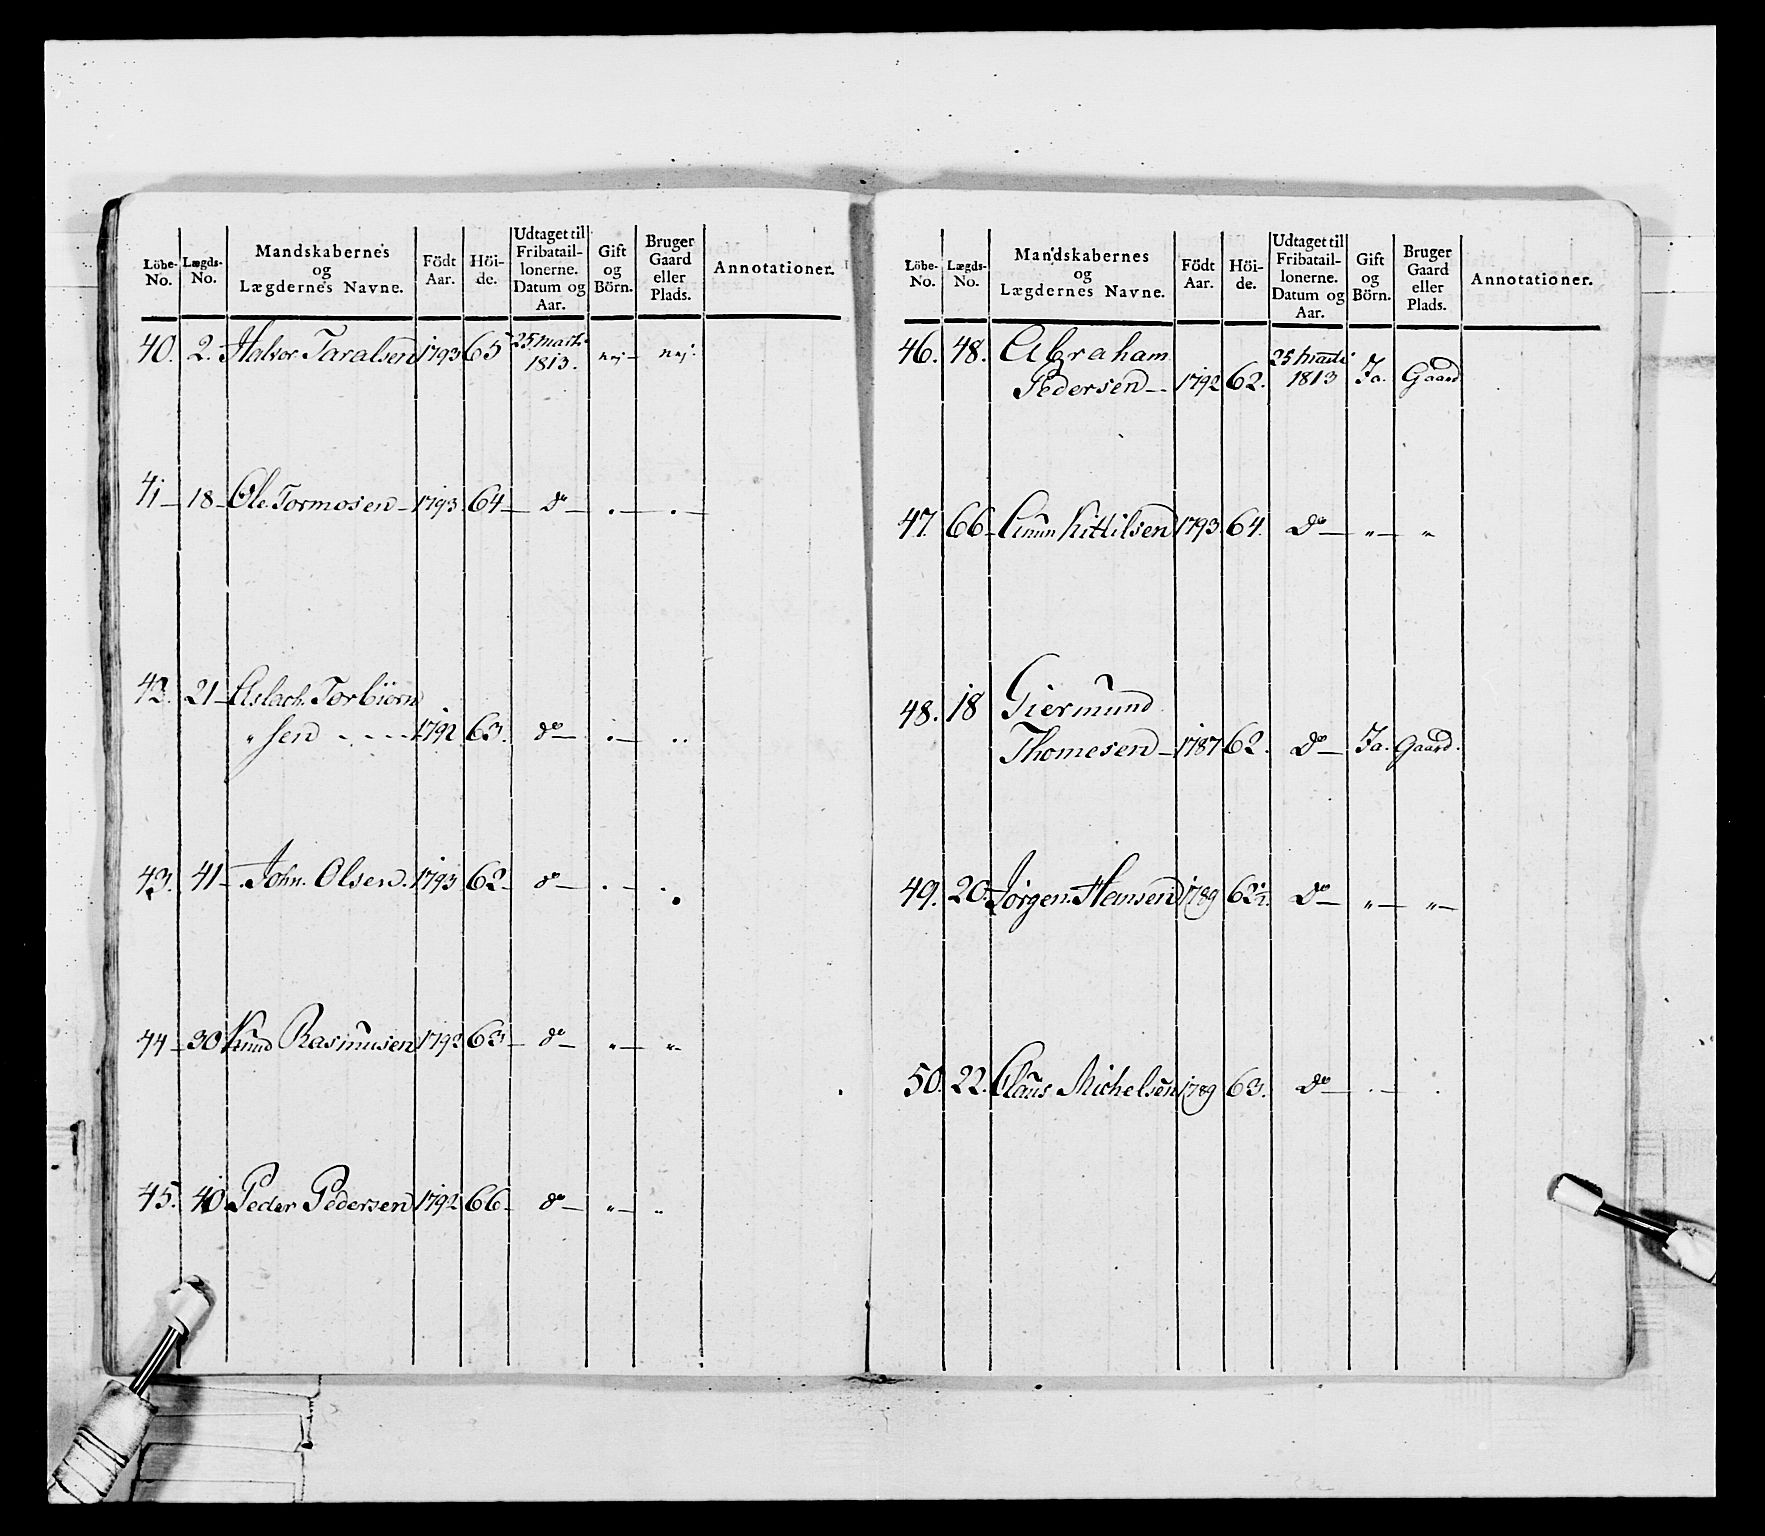 Löbe-No. Lægds-No. Mandskabernes og Lægdernes Navne. Födt Aar. Höi-de. Udtaget til Fribatail-lonerne. Datum og Aar. Gift og Börn. Bruger Gaard eller Plads. Annotationer.
40. 2. Halvor Taralsen 1793 65 25 Marti 1813. nej – nej.
41 – 18 – Ole Tormosen – 1793 64 – do – . – . –
42. 21 – Aslach Torbiörn
„ sen - - - - 1792 63. do – . – . .
43. 41 – John Olsen. 1793 62 – do – . – .
44 – 30 Knud Rasmusen 1793 63 – do – „ – „ –
45. 40 Peder Pedersen 1792 66 – do – „ – „
Löbe-No. Lægds-No. Mandskabernes og Lægdernes Navne. Födt Aar. Höi-de. Udtaget til Fribatail-lonerne. Datum og Aar. Gift og Börn. Bruger Gaard eller Plads. Annotationer.
46. 48. Abraham
Pedersen – 1792 62. 25 Marti 1813 Ja. Gaard
47. 66 – Anun Kittilsen 1793. 64. Do – „ – „
48. 18 Giermund
Thomesen – 1787 62. Do – Ja. Gaard.
49. 20. Jörgen Hansen 1789 62½. Do – „ – „ –
50. 22. Claus Michelsen 1789 63. Do – . – .